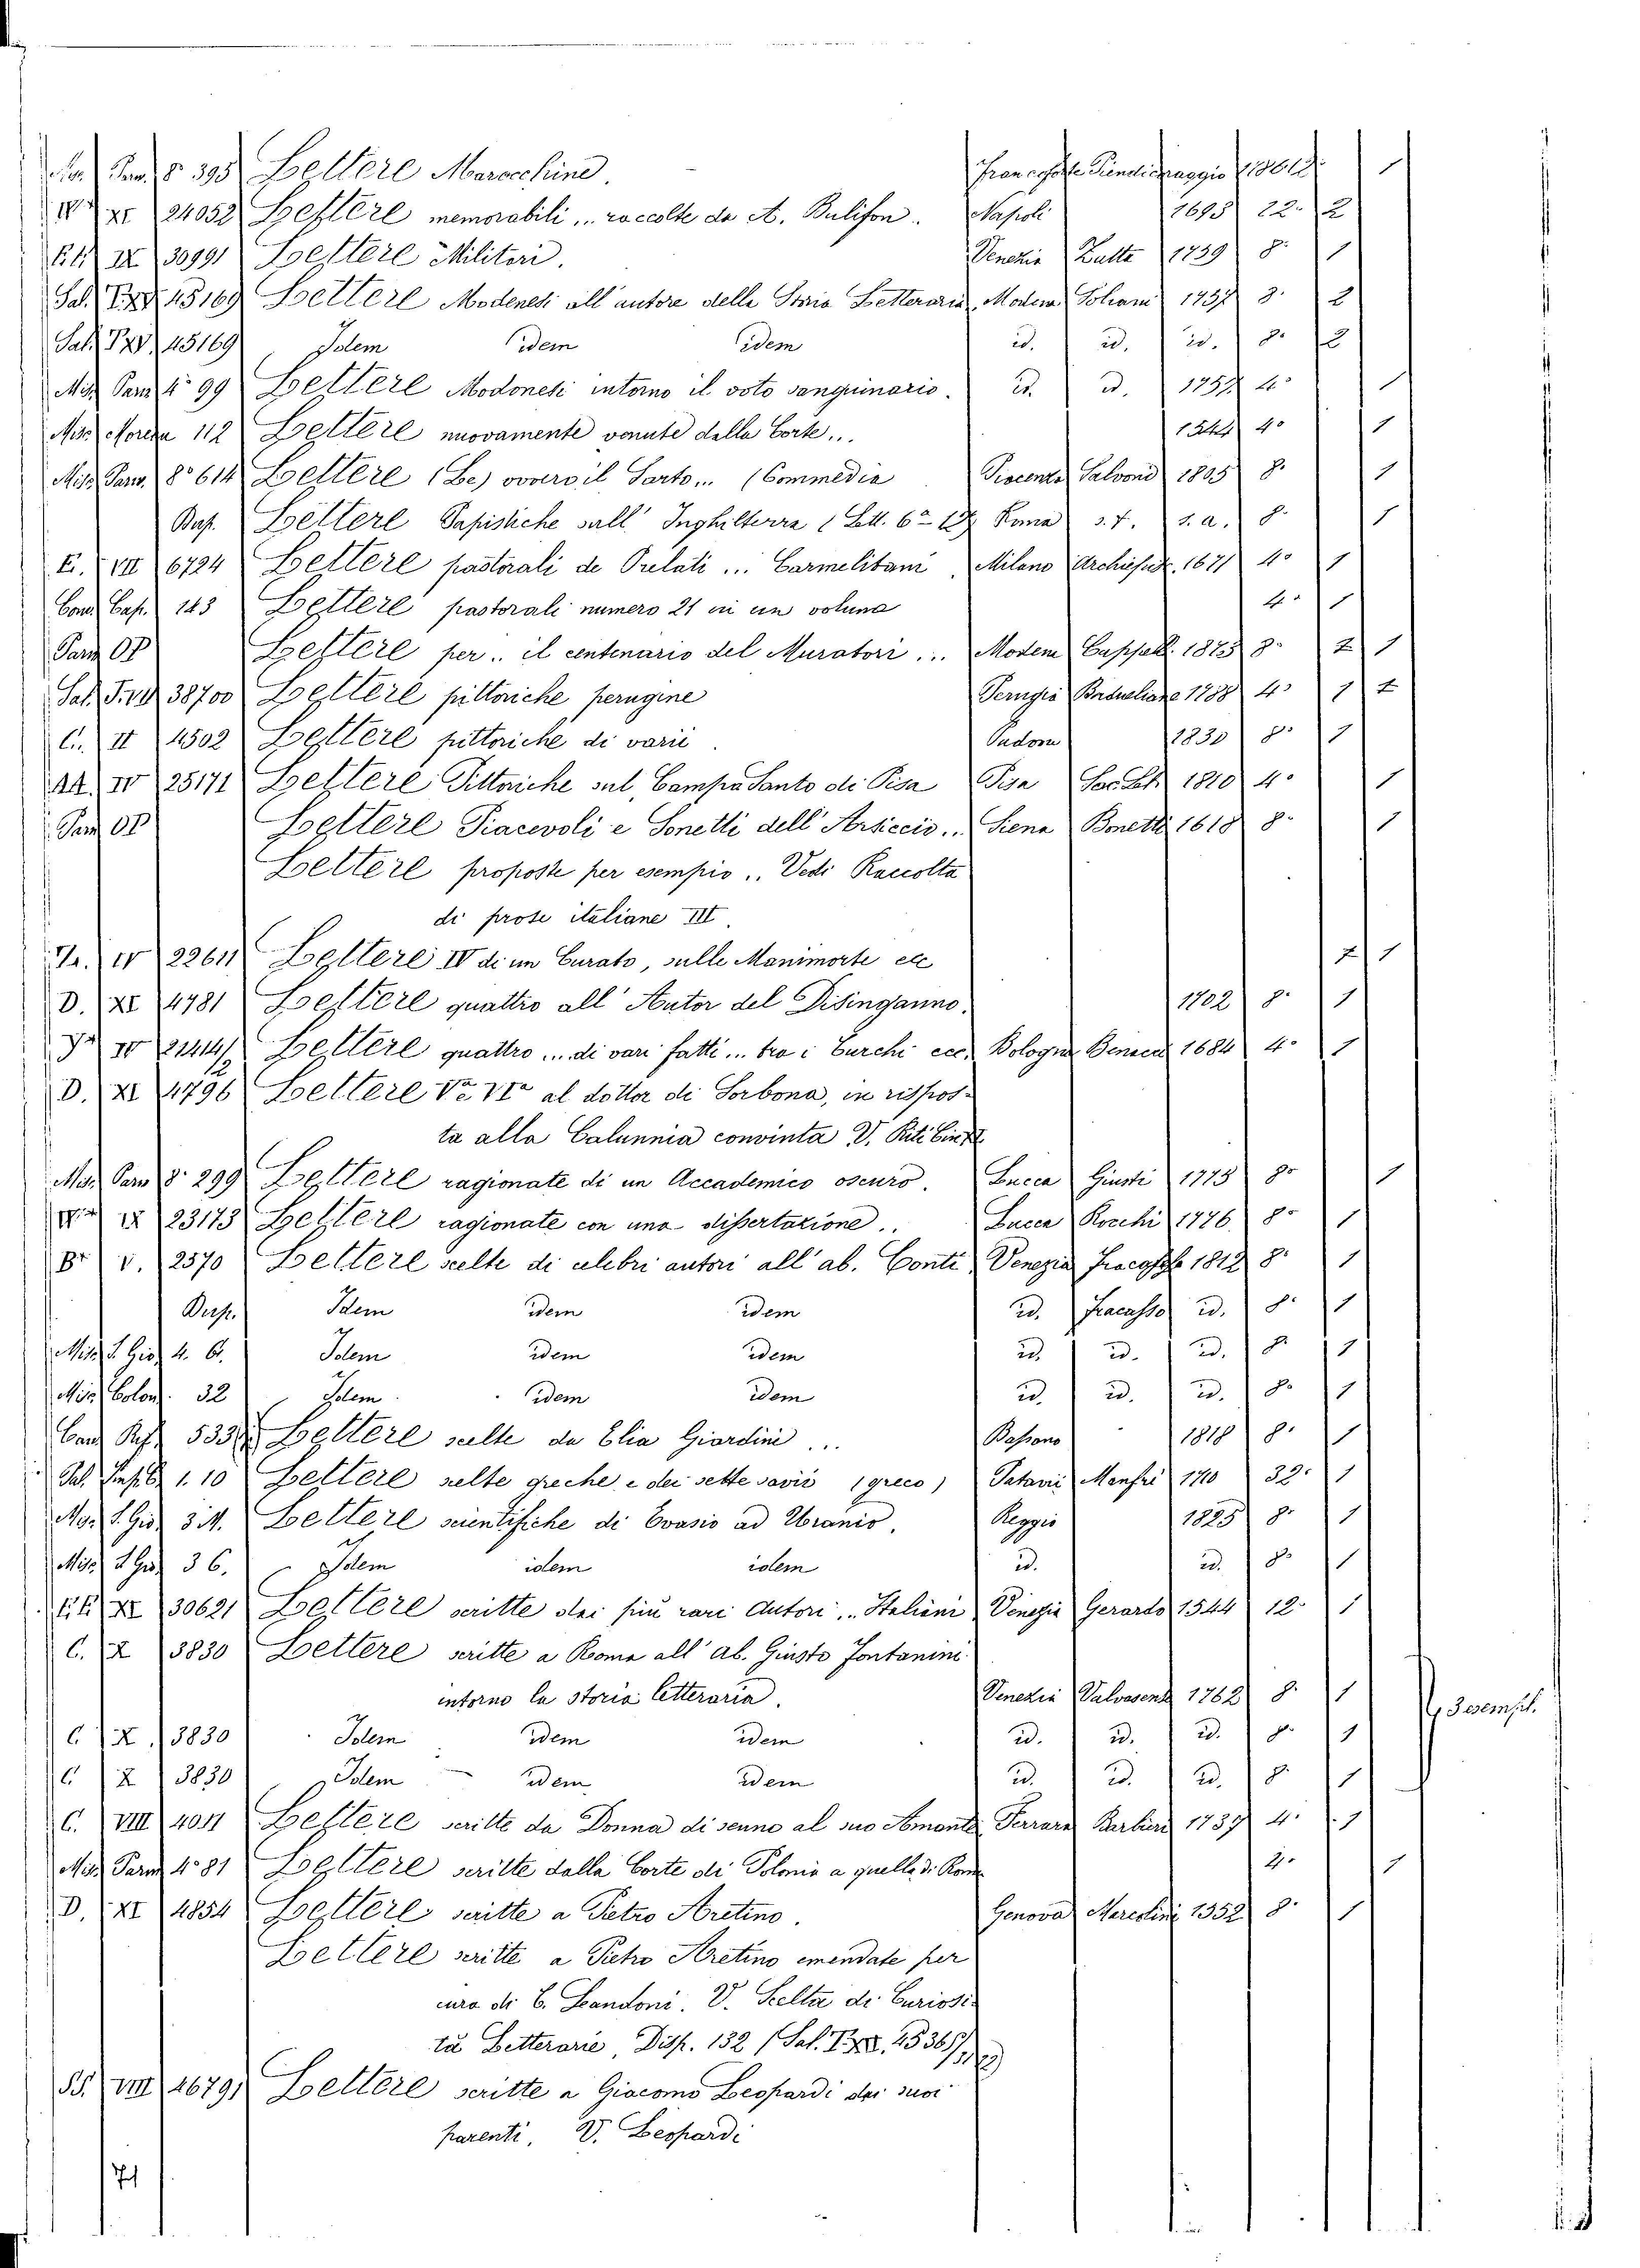 Parm. 8º 395 Lettere Marocchine 1
XI 24052 Lettere memorabili... raccolte da A. Bulifon. Napoli 1693 12º 2
EE IX 30991 Lettere Militari. Venezia Zatta 1759 8º 1
Sal. 45169 Lettere Modenesi all'autore della Storia Letteraria, Modena Soliani 1757 8. 2
Sal. 45169 Idem idem idem id. id. id. 8º 2
Misc. Parm. 4º 99 Lettere Modonesi intorno il voto sanguinario. id. id. 1757 4º 1
Misc. 112 Lettere nuovamente venute dalla Corte... 1544 4º 1
Misc. Parm. 8º 614 Lettere (Le) ovvero il Sarto... (Commedia Piacenza Salvoni 1805 8º 1
Lettere Papistiche sull' Inghilterra (Lett. 6ª Roma s.t. s.a. 8º 1
E. VIII 6724 Lettere pastorali de Prelati... Carmelitani, Milano 1671 4º 1
143 Lettere pastorali numero 21 in un 4º 1
Parm. Lettere per.. il centenario del Muratori... Modena Cappelli 1875 8º 1
Sal. 38700 Lettere pittoriche perugine Perugia Baduelliana 1788 4º 1
C. II 4502 Lettere pittoriche di varii Padova 1830 8º 1
AA. IV 25171 Lettere Pittoriche sul Campo Santo di Pisa Pisa 1810 4º 1
Parm. Lettere Piacevoli e Sonetti dell' Arsiccio.. Siena Bonetti 1618 8º 1
Lettere proposte per esempio.. Vedi Raccolta
di prose italiane III.
IV 22611 Lettere IV di un Curato, sulle Manimorte ecc 1
D. XI 4781 Lettere quattro all' Autor del Disinganno. 1702 8º 1
IV 21414/2 Lettere quattro... di vari fatti... tra i Turchi ecc. Bologna Benacci 1684 4º 1
D. XI 4796 Lettere Vª VIª al dottor di Sorbona, in rispos-
ta alla Calunnia convinta V. Riti
Misc. Parm 8º 299 Lettere ragionate di un Accademico oscuro. Lucca Giusti 1775 8º 1
IX 23173 Lettere ragionate con una dissertazione.. Lucca Rocchi 1776 8º 1
V. 2570 Lettere scelte di celebri autori all' ab. Conti, Venezia Fracasso 1812 8º 1
Idem idem idem id. Fracasso id. 8º 1
Misc. S. Gio. 4. 6. Idem idem idem id. id. id. 8º 1
Misc. Colon. 32 Idem idem idem id. id. id. 8º 1
533 Lettere scelte da Elia Giardini... Bassano 1818 8º 1
1. 10 Lettere scelte greche e dei sette savii (greco) Patavii Manfrè 1710 32º 1
S. Gio. 3 Lettere scientifiche di Evasio ad Uranio. Reggio 1825 8º 1
Misc. S. Gio. 36. Idem idem idem id. id. 8º 1
EE XI 30621 Lettere scritte dei piu rari Autori.. Italiani Venezia Gerardo 1544 12º 1
C. X 3830 Lettere scritte a Roma all' ab. Giusto Fontanini
intorno la storia letteraria. Venezia Valvasense 1762 8º 1 3 esempl.
C. X. 3830 Idem idem idem id. id. id. 8º 1
C X 3830 Idem idem idem id. id. id. 8º 1
C. VIII 4011 Lettere scritte da Donna di senno al suo Amante Ferrara Barbieri 1737 4º 1
Misc. Parm. 4º 81 Lettere scritte dalla Corte di Polonia a quella di Roma 4º 1
D. XI 4854 Lettere scritte a Pietro Aretino. Genova Marcolini 1552 8º 1
Lettere scritte a Pietro Aretino emendate per
cura di C. Landoni. V. Scelta di Curiosi-
tà Letterarie, Disp. 132 (Sal.
SS. VIII 46791 Lettere scritte a Giacomo Leopardi dai suoi
parenti. V. Leopardi
71